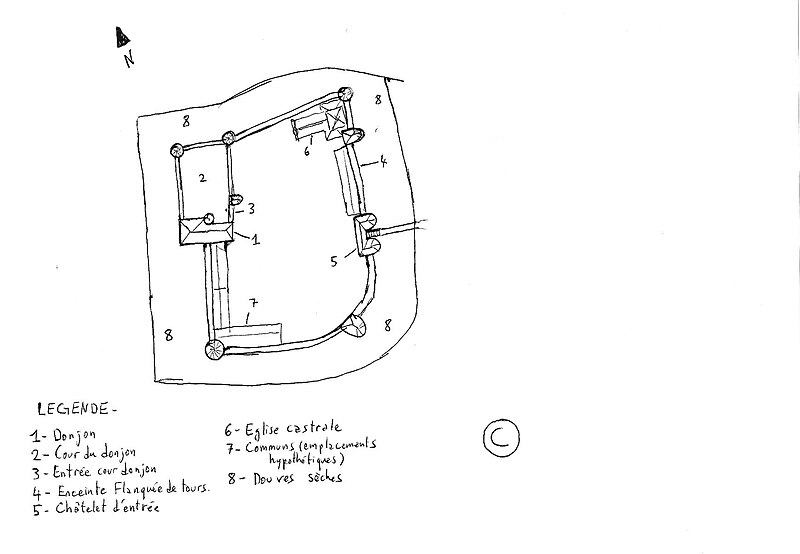 N
8
8
6
2
4
3
1
5
7
8
8
LEGENDE-
1- Donjon
2- Cour du donjon
3- Entrée cour donjon
4- Enceinte Flanquée de tours.
5- Châtelet d'entrée
6- Eglise castrale
7- Communs (emplacements
hypothétiques)
8- Douves sèches
C